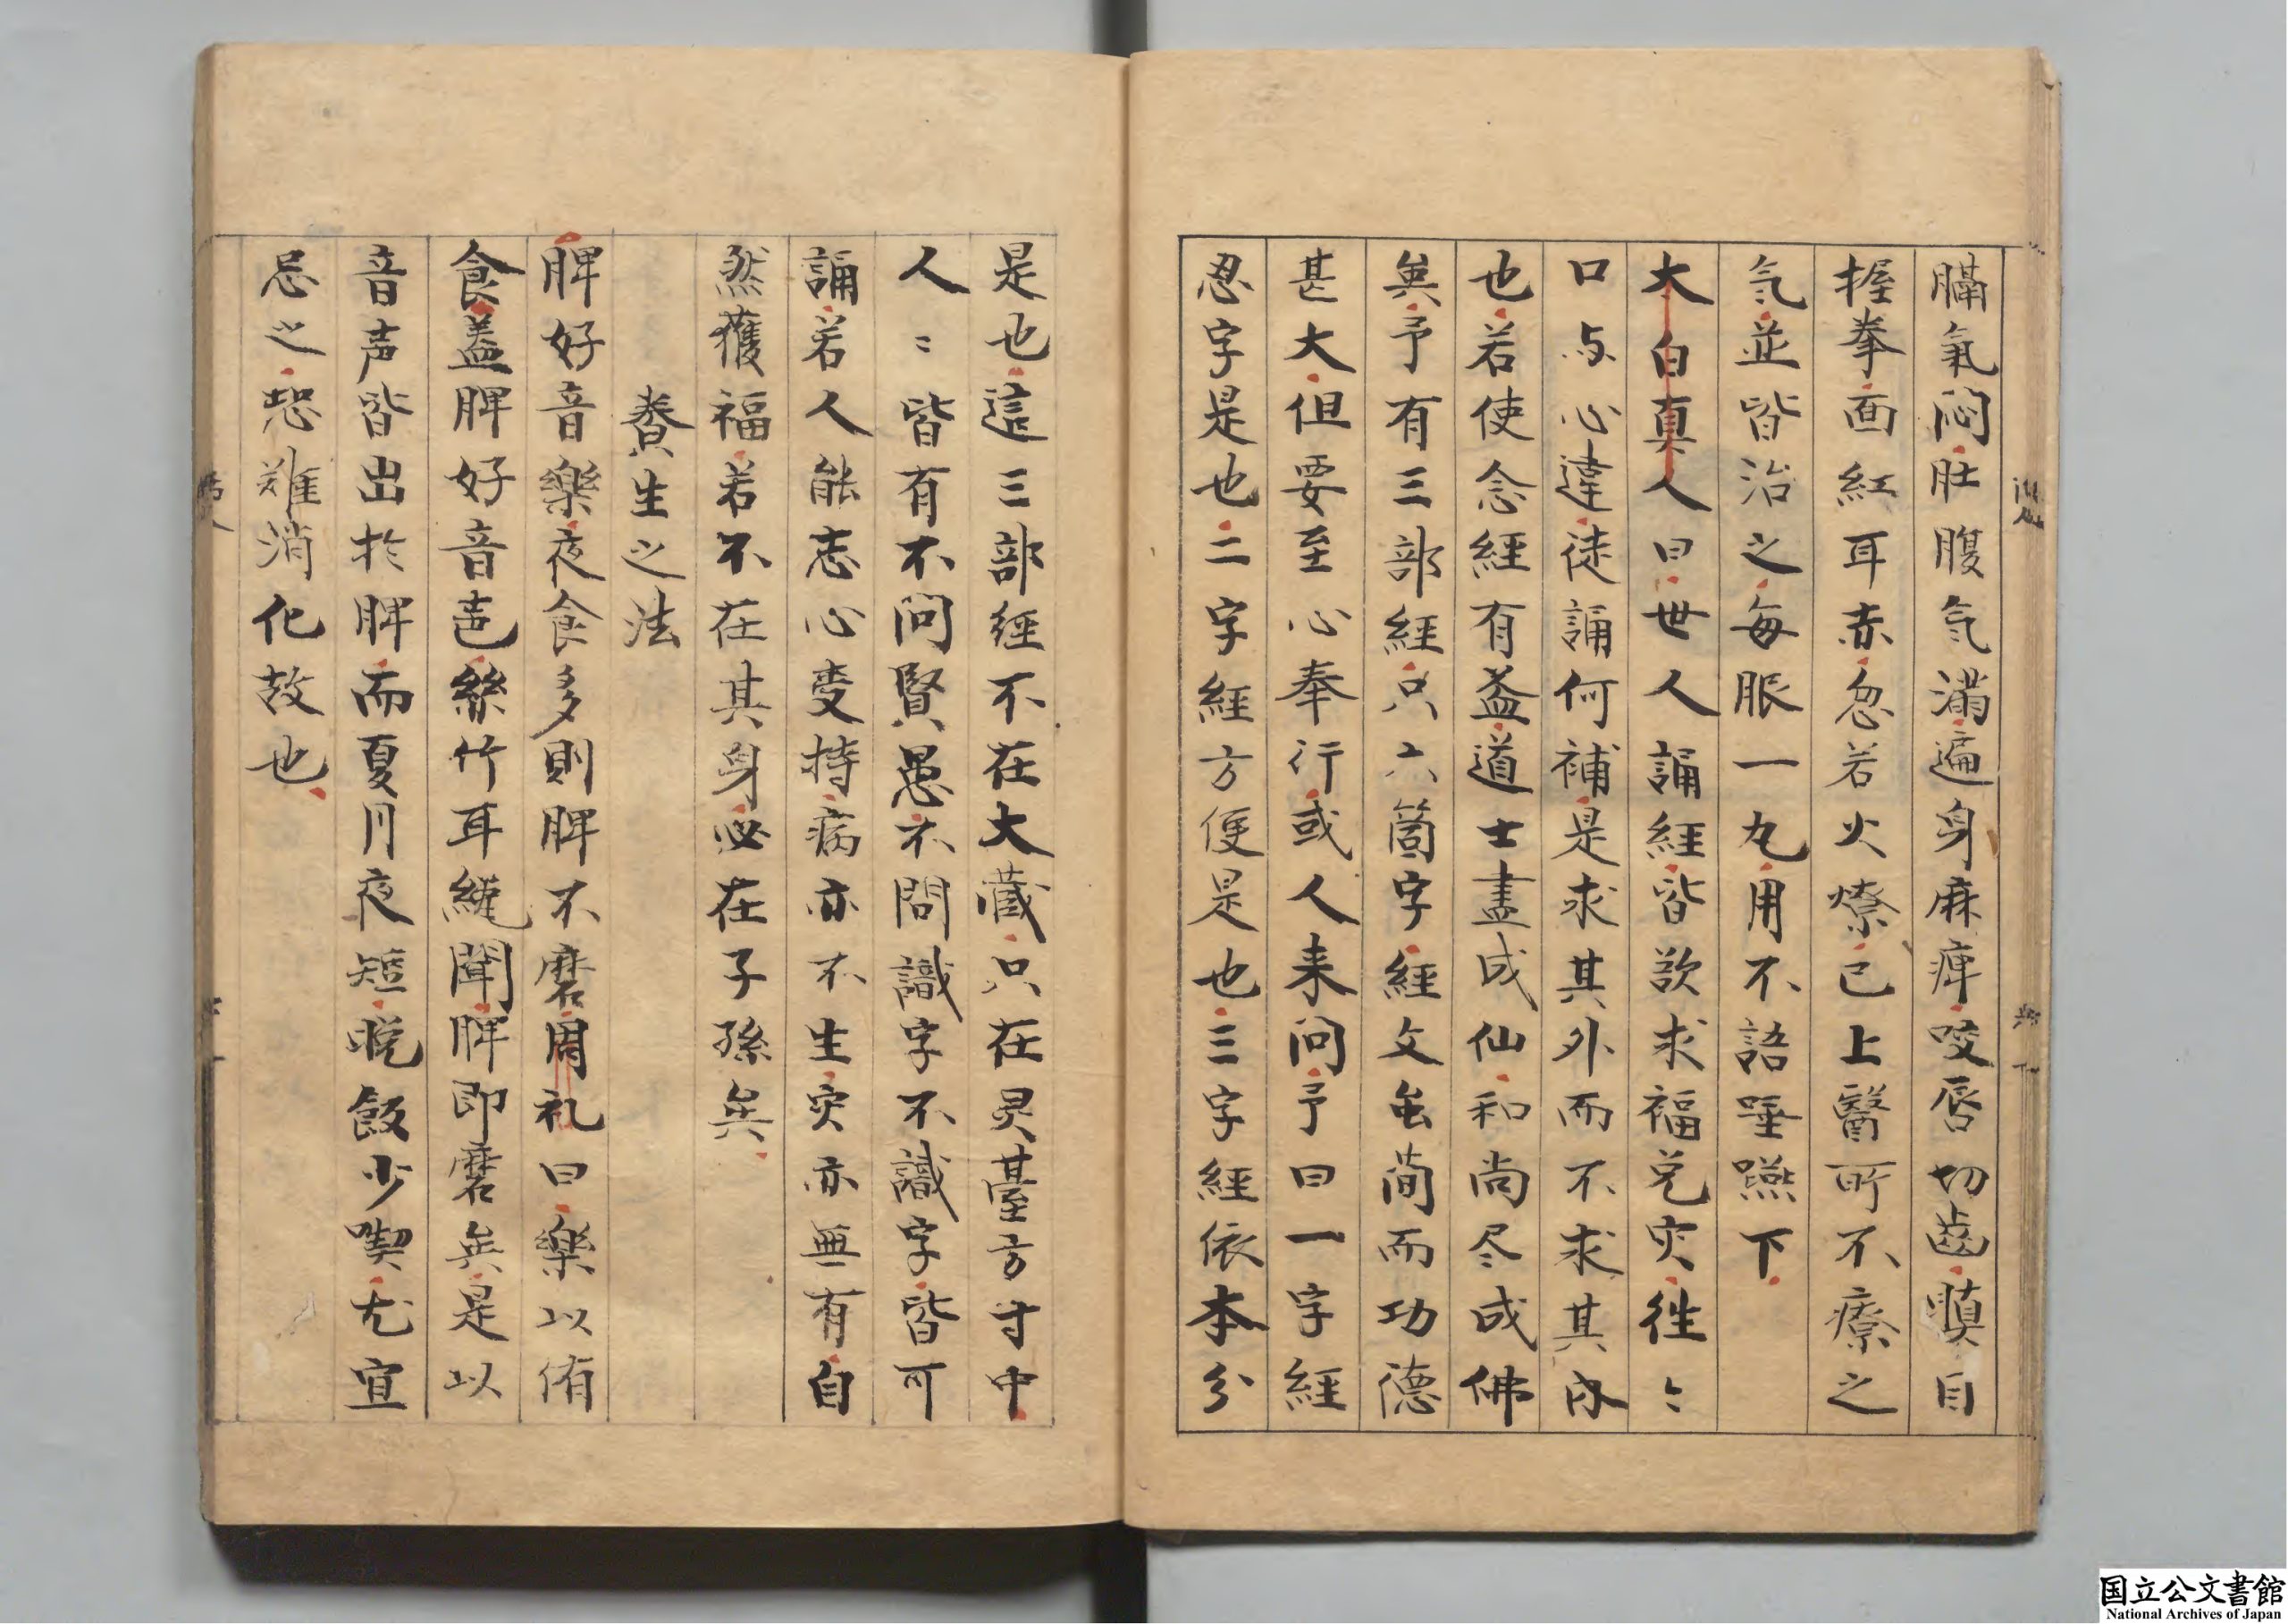 膈氣悶肚腹气滿遍身麻痺咬唇切齒瞋目
握拳面紅耳赤忽若火燎已上醫所不療之
气並皆治之每服一丸用不語唾嚥下
太白真人曰世人誦經皆欲求福免灾往〻
口与心違徒誦何補是求其外而不求其内
也若使念經有益道士盡成仙和尚尽成佛
矣予有三部經只六箇字經文虽简而功德
甚大但要至心奉行或人来问予曰一字經
忍字是也二字經方便是也三字經依本分
是也這三部經不在大藏只在灵臺方寸中
人〻皆有不问賢愚不問識字不識字皆可
誦若人能志心受持病亦不生灾亦無有自
然獲福若不在其身必在子孫矣
養生之法
脾好音樂夜食多則脾不磨周礼曰樂以侑
食盖脾好音声絲竹耳纔聞脾即磨矣是以
音声皆出於脾而夏月夜短晚飯少喫尤宜
忌之恐難消化故也
国立公文書館
National Archives of Japan